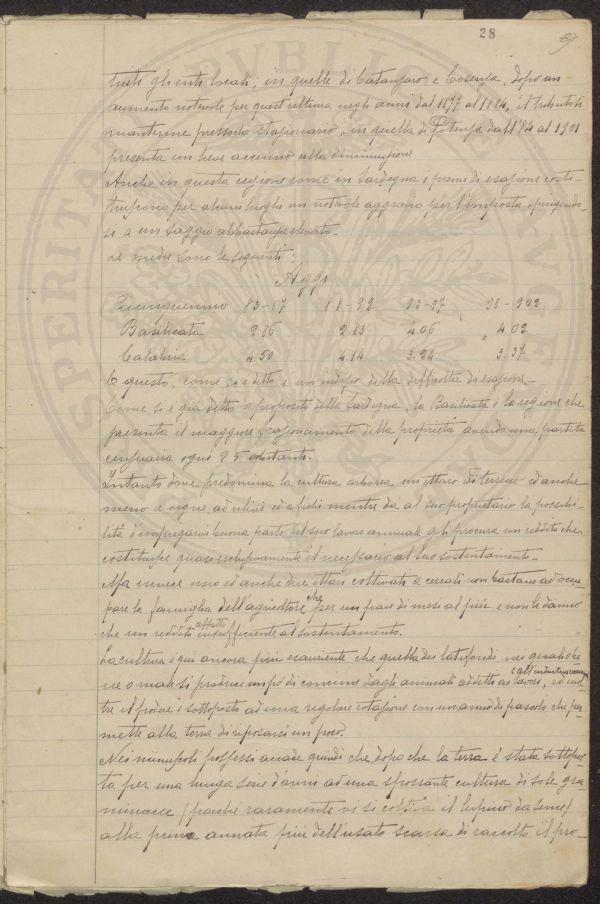 28
tutti gli enti locali; in quelle di Catanzaro e Cosenza, dopo un
aumento notevole per quest'ultima negli anni dal 1877 al 1884, il tributo si
mantenne pressoché stazionario, in quella di Potenza dall'84 al 1901
presenta un lieve accenno alla diminuzione
Anche in questa regione come in Sardegna i premi di esazione costi-
tuiscono per alcuni luoghi un notevole aggravio per l'imposta spingendo-
si a un saggio abbastanza elevato.
Le medie sono le seguenti:
Aggi
Quinquennio 83-87 88-92 93-97 98-902
Basilicata 2.86 2.83 4.06 4.02
Calabria 4.50 4.14 3.24 3,37
E questo, come si è detto è un indizio della difficoltà di esazione.
Come si è già detto a proposito della Sardegna, la Basilicata è la regione che
presenta il maggiore frazionamento della proprietà avendo una partita
censuaria ogni 2 5 abitanti.
Intanto dove predomina la cultura arborea un ettaro di terreno ed anche
meno a vigne, ad ulivi ed a fichi mentre dà al suo proprietario la possibi-
lità d'impegnarvi buona parte del suo lavoro annuale gli procura un reddito che
costituisce quasi esclusivamente il necessario al suo sostentamento.
Ma invece uno ed anche due ettari coltivati a cereali non bastano ad occu-
pare la famiglia dell'agricoltore che per un paio di mesi al più e non le danno
che un reddito affatto insufficiente al sostentamento.
La cultura è qui ancora più esauriente che quella dei latifondi nei quali be-
ne o male si produce un po' di concime dagli animali addetti ai lavori, ed inol-
tre il podere è sottoposto ad una regolare rotazione con un anno di pascolo che per-
mette alla terra di riposarsi un poco.
Nei minuscoli possessi accade quindi che dopo che la terra è stata sottopos-
ta per una lunga serie d'anni ad una spossante cultura di sole gra-
minacce (poiché raramente vi si coltiva il lupino da seme)
alla prima annata più dell'usato scarsa di raccolto il pro-